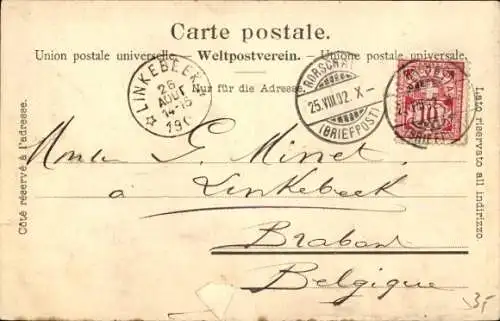 Carte postale.
Union postale universelle. — Weltpostverein. — Unione postale universale.
Nur für die Adresse.
LINKEBEEK
26
AOUT
14-15
190
RORSCHACH
25.VIII.02. X-
(BRIEFPOST)
10
Côté réservé à l'adresse.
Lato riservato all indirizzo.
G. Minet
à Linkebeek
Brabant
Belgique